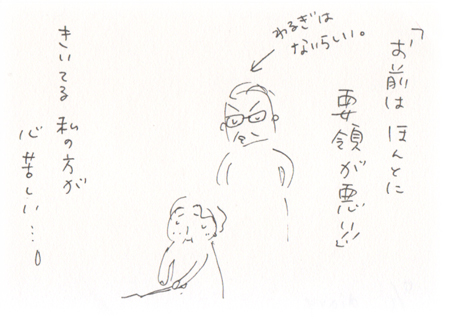 「お前は ほんとに
要領が悪い!!」
わるぎは
ないらしい。
きいてる 私の方が
心苦しい…。